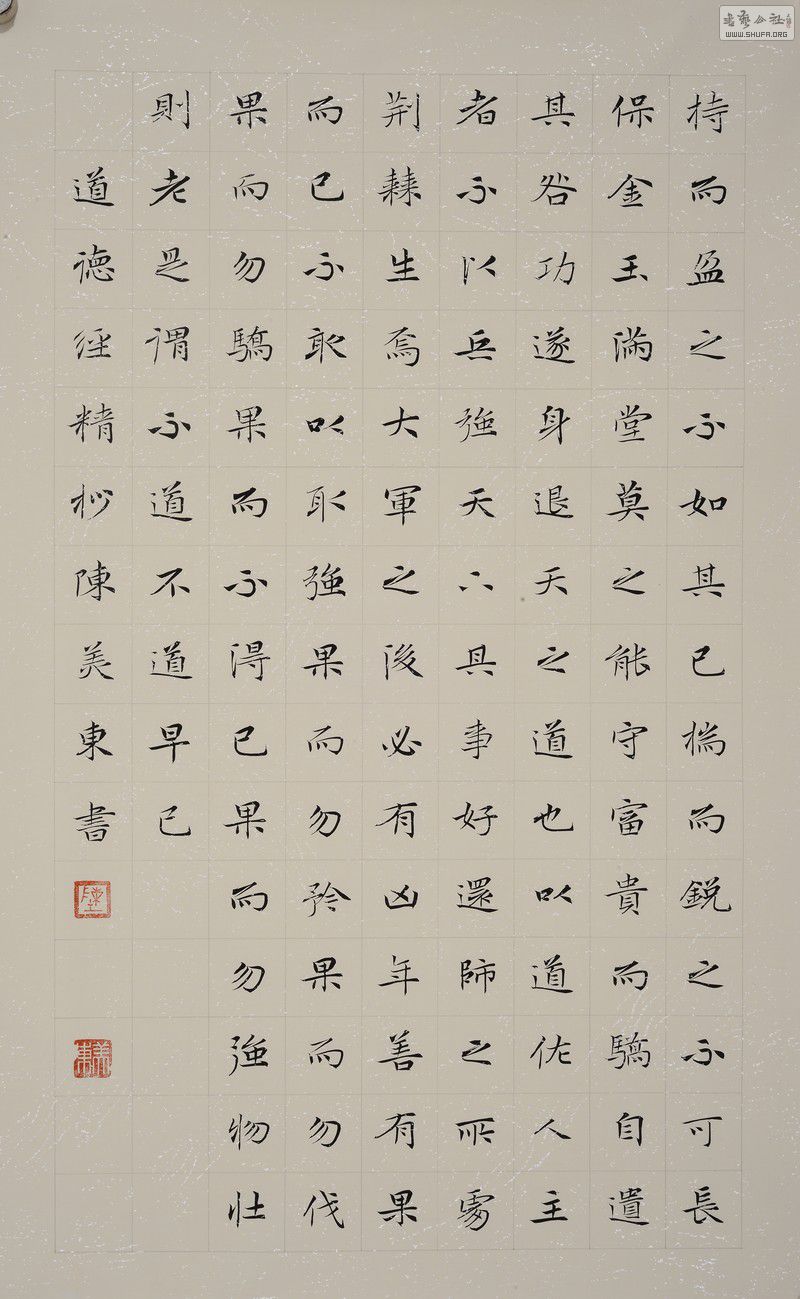 持而盈之不如其已揣而銳之不可長
保金玉滿堂莫之能守富貴而驕自遺
其咎功遂身退天之道也以道佐人主
者不以兵強天下其事好還師之所處
荆棘生焉大軍之後必有凶年善有果
而已不敢以取強果而勿矜果而勿伐
果而勿驕果而不得已果而勿強物壯
則老是謂不道不道早已
道德經精妙陳美東書
書藝公社
WWW.SHUFA.ORG